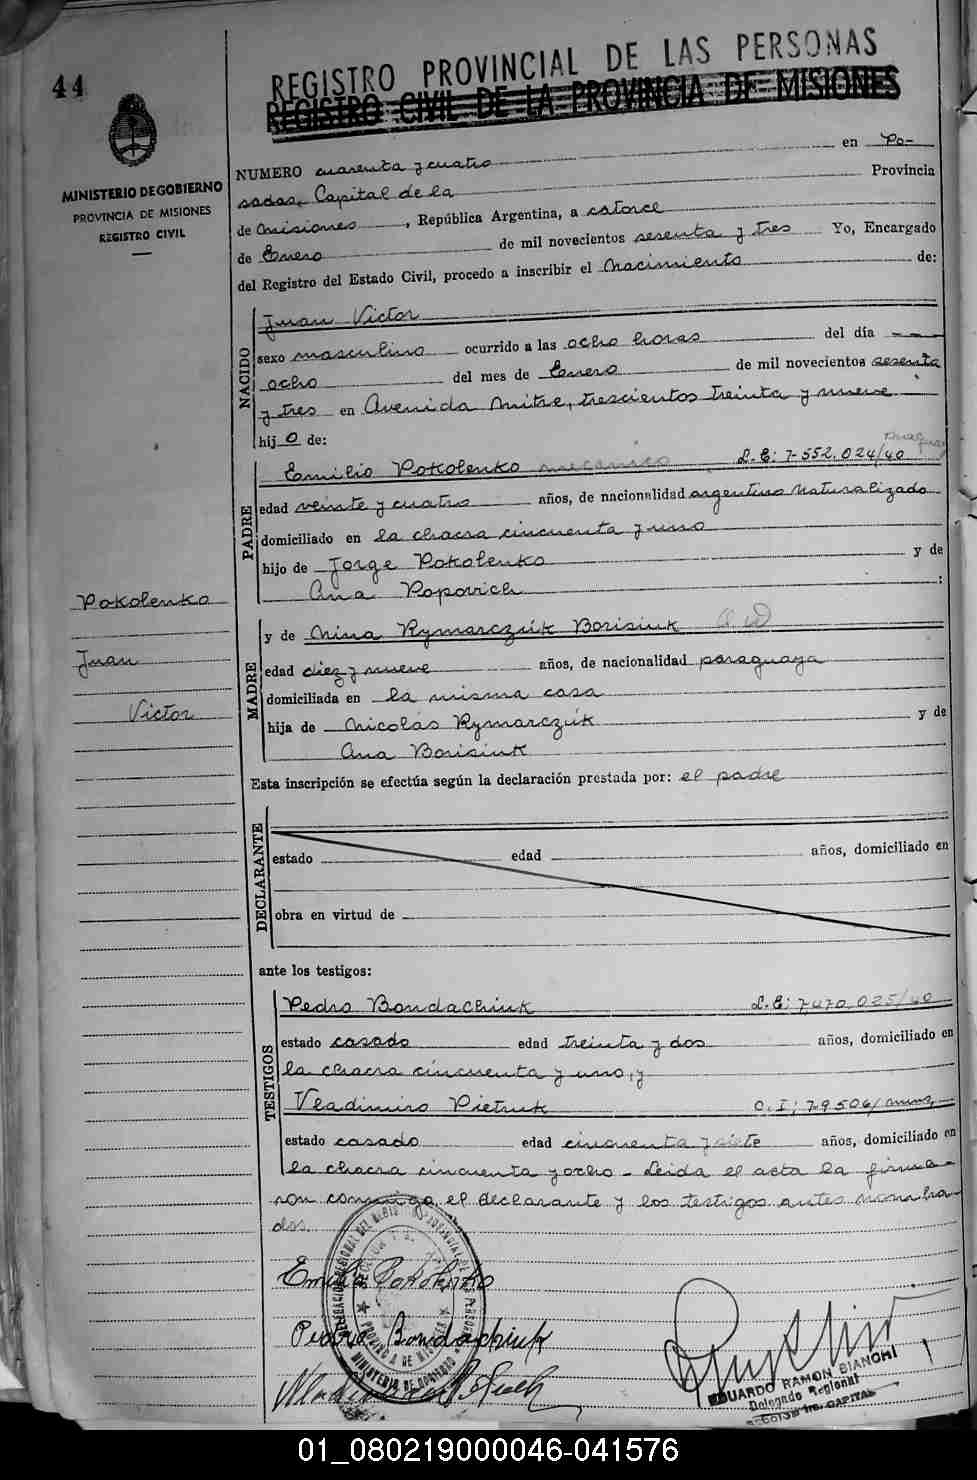 44
REGISTRO PROVINCIAL DE LAS PERSONAS
REGISTRO CIVIL DE LA PROVINCIA DE MISIONES
MINISTERIO DE GOBIERNO
PROVINCIA DE MISIONES
REGISTRO CIVIL
NUMERO cuarenta y cuatro en Po-
sadas, Capital de la Provincia
de Misiones, República Argentina, a catorce
de Enero de mil novecientos sesenta y tres Yo, Encargado
del Registro del Estado Civil, procedo a inscribir el Nacimiento de:
NACIDO
Juan Victor
sexo masculino ocurrido a las ocho horas del día
ocho del mes de Enero de mil novecientos sesenta
y tres en Avenida Mitre, trescientos treinta y nueve
hij o de:
PADRE
Emilio Pokolenko mecánico L.E: 7-552.024/40
edad veinte y cuatro años, de nacionalidad argentino Naturalizado
domiciliado en la chacra cincuenta y uno
hijo de Jorge Pokolenko y de
Ana Popovich :
Pokolenko
Juan
Victor
MADRE
y de Nina Rymarczúk Borisiuk
edad diez y nueve años, de nacionalidad paraguaya
domiciliada en la misma casa
hija de Nicolás Rymarczúk y de
Ana Borisiuk
Esta inscripción se efectúa según la declaración prestada por: el padre
DECLARANTE
estado edad años, domiciliado en
obra en virtud de
ante los testigos:
TESTIGOS
Pedro Bondachiuk L.E: 7,470,025/40
estado casado edad treinta y dos años, domiciliado en
la chacra cincuenta y uno, y
Vladimiro Pietruk C.I; 79506/mnes,
estado casado edad cincuenta y siete años, domiciliado en
la chacra cincuenta y ocho - Leida el acta la firma-
ron conmigo, el declarante y los testigos antes nombra-
dos.
Emilio Pokolenko
Pedro Bondachiuk
PROVINCIA DE MISIONES
MINISTERIO DE GOBIERNO
EDUARDO RAMON BIANCHI
Delegado Regional
CAPITAL
01_080219000046-041576